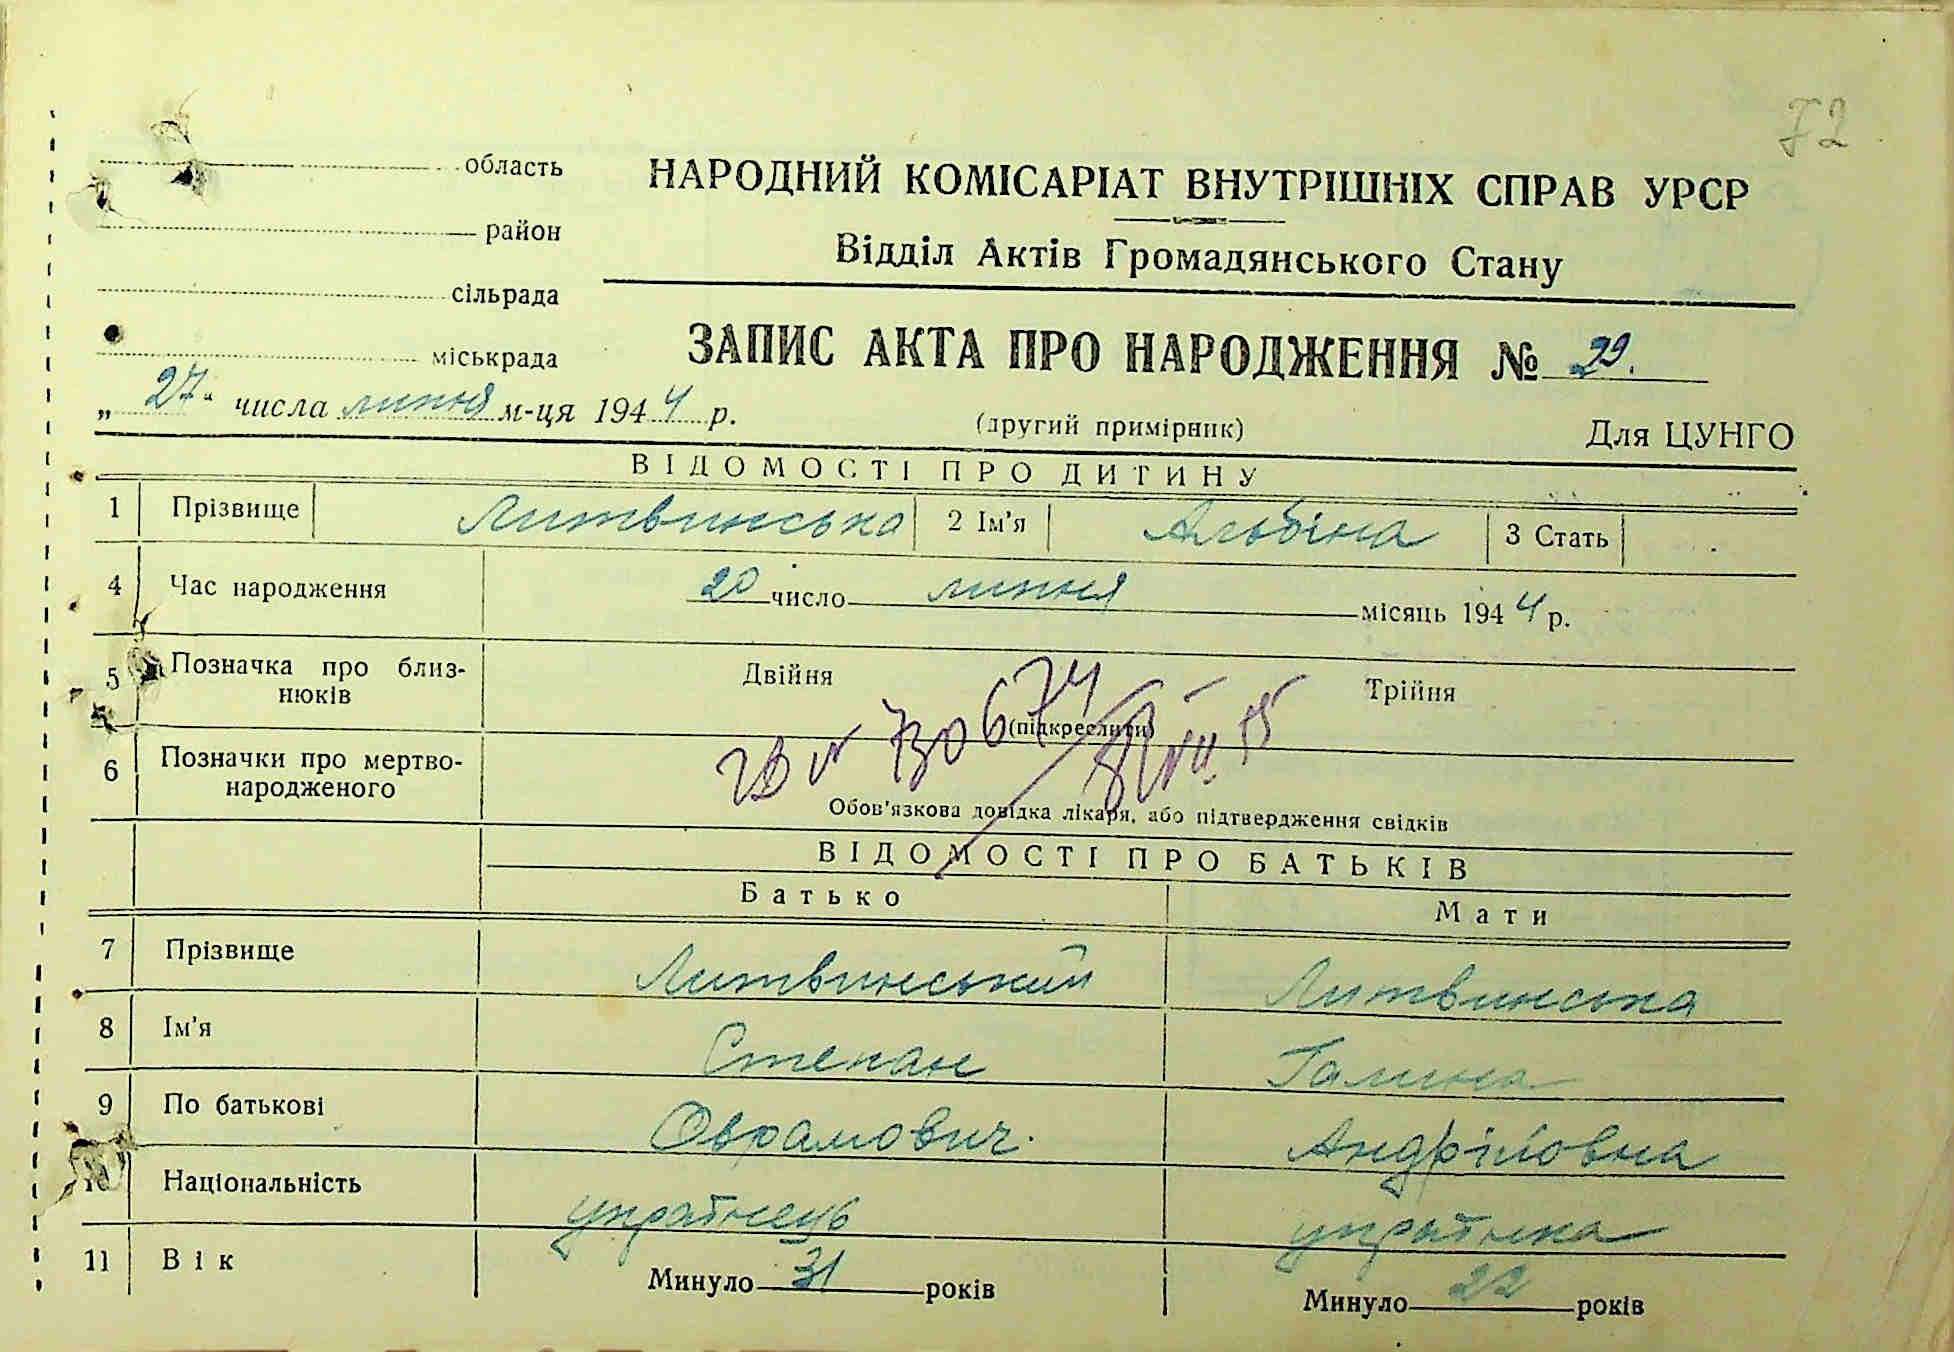 72
область
НАРОДНИЙ КОМІСАРІАТ ВНУТРІШНІХ СПРАВ УРСР
район
Відділ Актів Громадянського Стану
сільрада
міськрада
ЗАПИС АКТА ПРО НАРОДЖЕННЯ № 29.
„ 27 " числа липня м-ця 1944 р.
(другий примірник)
Для ЦУНГО
ВІДОМОСТІ ПРО ДИТИНУ
1 Прізвище Литвинська 2 Ім'я Альбіна 3 Стать
4 Час народження 20 число липня місяць 1944 р.
5 Позначка про близнюків Двійня Трійня
(підкреслити)
6 Позначки про мертвонародженого
Обов'язкова довідка лікаря, або підтвердження свідків
ВІДОМОСТІ ПРО БАТЬКІВ
Батько Мати
7 Прізвище Литвинський Литвинська
8 Ім'я Степан Галина
9 По батькові Оврамович. Андріївна
10 Національність українець українка
11 Вік Минуло 31 років Минуло 22 років